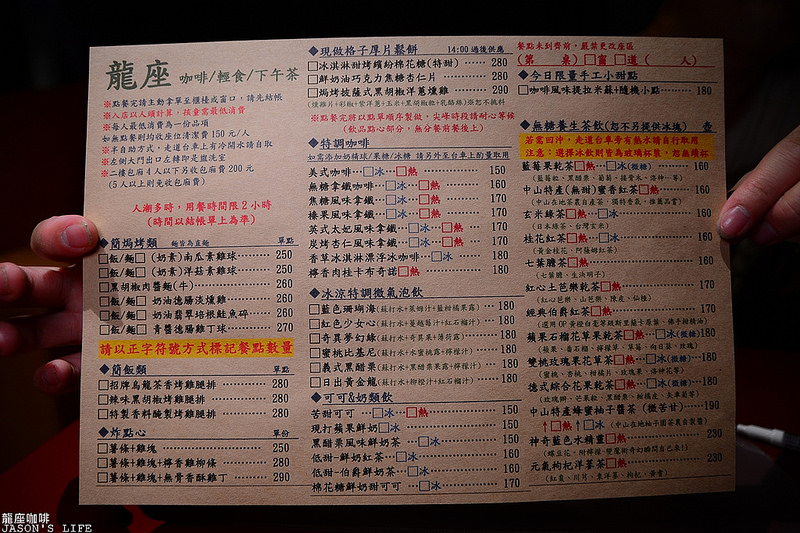 龍座 咖啡/輕食/下午茶
※點餐完請主動拿單至櫃檯或窗口，請先結帳
※入店以人頭計算，孩童需最低消費
※每人最低消費為一份品項
如無點餐則均收座位清潔費 150 元/人
※半自助方式，走道台車上有冷開水請自取
※左側大門出口左轉即是盥洗室
※二樓包廂 4 人以下另收包廂費 200 元
(5 人以上則免收包廂費)
人潮多時，用餐時間限 2 小時
(時間以結帳單上為準)
◆簡焗烤類 麵皆為直麵 單點
□飯/麵□ (奶素)南瓜素雞球 250
□飯/麵□ (奶素)洋菇素雞球 250
□黑胡椒肉醬麵(牛) 260
□飯/麵□ 奶油德腸淡燻雞 260
□飯/麵□ 奶油翡翠培根鮭魚碎 260
□飯/麵□ 青醬德腸雞丁球 270
請以正字符號方式標記餐點數量
◆簡飯類 單點
□招牌烏龍茶香烤雞腿排 280
□辣味黑胡椒烤雞腿排 280
□特製香料醃製烤雞腿排 280
◆炸點心 單份
□薯條+雞塊 250
□薯條+雞塊+檸香雞柳條 280
□薯條+雞塊+無骨香酥雞丁 290
◆現做格子厚片鬆餅 14:00 過後供應
□冰淇淋甜烤繽紛棉花糖(特甜) 280
□鮮奶油巧克力焦糖杏仁片 280
□焗烤披薩式黑胡椒洋蔥燻雞 290
(燻雞片+彩椒+紫洋蔥+玉米+黑胡椒粒+乳酪絲)※恕不挑料
※點餐完將以點單順序製做，尖峰時段請耐心等候
(飲品點心部分，無分餐前餐後上)
◆特調咖啡
如需添加奶精球/果糖/冰糖 請另外至台車上酌量取用
美式咖啡 □冰 □熱 150
無糖拿鐵咖啡 □冰 □熱 160
焦糖風味拿鐵 □冰 □熱 170
榛果風味拿鐵 □冰 □熱 170
英式太妃風味拿鐵 □冰 □熱 170
炭烤杏仁風味拿鐵 □冰 □熱 170
香草冰淇淋漂浮冰咖啡 □冰 180
檸香肉桂卡布奇諾□熱 180
◆冰涼特調微氣泡飲
□藍色珊瑚海(蘇打水+萊姆汁+藍柑橘果露) 180
□紅色少女心(蘇打水+蔓越莓汁+紅石榴汁) 180
□奇異夢幻綠(蘇打水+奇異果+薄荷露) 180
□蜜桃比基尼(蘇打水+水蜜桃露+檸檬汁) 180
□義式黑醋栗(蘇打水+黑醋栗果露+檸檬汁) 180
□日出黃金龍(蘇打水+柳橙汁+紅石榴汁) 180
◆可可&奶類飲
苦甜可可 □冰 □熱 150
現打蘋果鮮奶 □冰 150
黑醋栗風味鮮奶茶 □冰 150
低甜-鮮奶紅茶 □冰 □熱 160
低甜-伯爵鮮奶茶 □冰 □熱 160
棉花糖鮮奶甜可可 □冰 □熱 170
餐點未到齊前，嚴禁更改座區
(第 桌) □窗 □道 ( 人)
◆今日限量手工小甜點
□咖啡風味提拉米蘇+隨機小點 180
◆無糖養生茶飲(恕不另提供冰塊) 壺
若需回沖，走道台車旁有熱水請自行取用
注意：選擇冰飲則皆為玻璃杯裝，恕無續杯
藍莓果乾茶□熱 □冰(微糖) 160
(藍莓粒、黑醋栗、葡萄、接骨木、洛神…等)
中山特產(無甜)蜜香紅茶□熱 160
(中山在地茶農自產茶，獨特香氣，推薦品嘗)
玄米綠茶□熱 □冰 160
(日本綠茶、台灣玄米)
桂花紅茶□熱 □冰 160
(黃金桂花、阿薩姆紅茶)
七葉膽茶□熱 160
(七葉膽、生決明子)
紅心土芭樂乾茶□熱 160
(紅心芭樂、山芭樂、陳皮、仙楂)
經典伯爵紅茶□熱 170
(選用 OP 黃橙白毫等級斯里蘭卡原葉、佛手柑精油)
蘋果石榴花草果乾茶□熱 □冰(微糖)180
(蘋果、番石榴、檸檬草、草莓、向日葵、玫瑰)
雙桃玫瑰果花草茶□熱 □冰(微糖)180
(蜜桃、杏桃、柑橘片、玫瑰果、洛神花等)
德式綜合花果乾茶□熱 □冰(微糖)180
(玫瑰餅、芒果粒、黑醋栗、柑橘皮、矢車菊等)
中山特產蜂蜜柚子醬茶(微苦甘) 190
↑□熱 ↑□冰(中山在地柚子園茶農自製醬)
神奇藍色水精靈□熱 230
(蝶豆花，附檸檬，雙魔術奇幻瞬間自己來!)
元氣枸杞洋蔘茶□熱 230
(紅棗、川芎、東洋蔘、枸杞、黃耆)
龍座咖啡
JASON'S LIFE